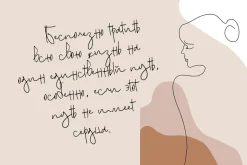 Бесполезно тратить
всю свою жизнь на
один единственный путь,
особенно, если этот
путь не имеет
сердца.